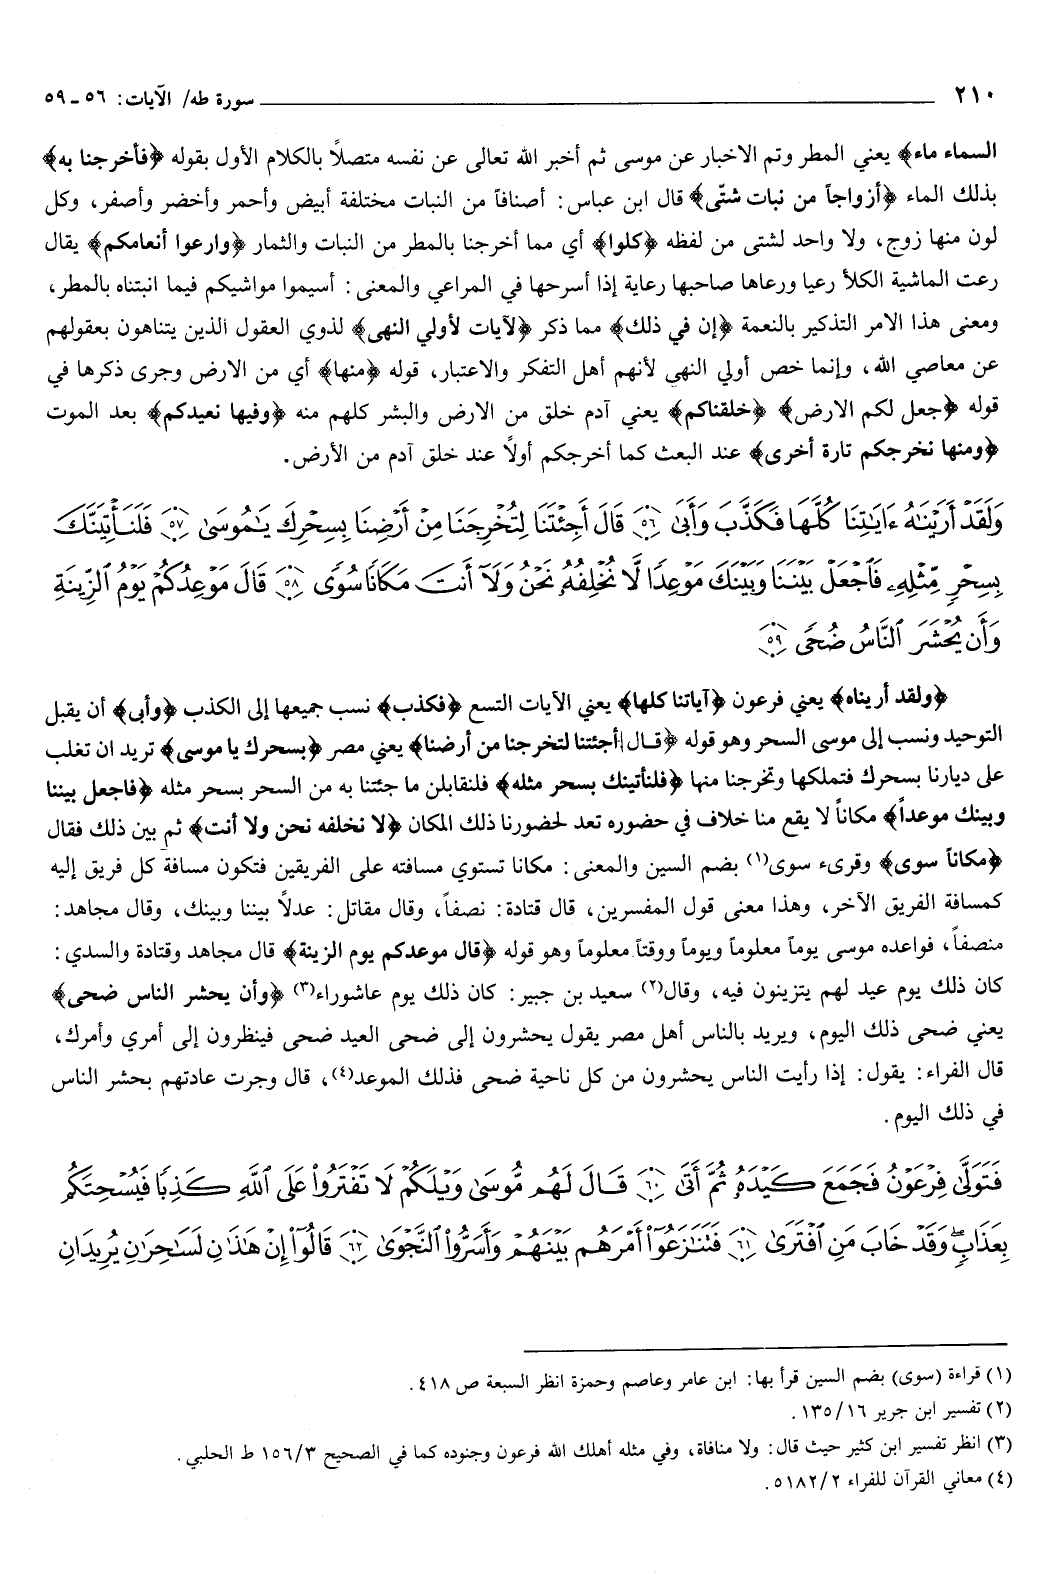 ٢١٠ سورة طه/ الآيات: ٥٦ ـ ٥٩
السماء ماء﴾ يعني المطر وتم الاخبار عن موسى ثم أخبر الله تعالى عن نفسه متصلاً بالكلام الأول بقوله ﴿فأخرجنا به﴾
بذلك الماء ﴿أزواجاً من نبات شتّى﴾ قال ابن عباس: أصنافاً من النبات مختلفة أبيض وأحمر وأخضر وأصفر، وكل
لون منها زوج، ولا واحد لشتى من لفظه ﴿كلوا﴾ أي مما أخرجنا بالمطر من النبات والثمار ﴿وارعوا أنعامكم﴾ يقال
رعت الماشية الكلأ رعيا ورعاها صاحبها رعاية إذا أسرحها في المراعي والمعنى: أسيموا مواشيكم فيما انبتناه بالمطر،
ومعنى هذا الامر التذكير بالنعمة ﴿إن في ذلك﴾ مما ذكر ﴿لآيات لأولي النهى﴾ لذوي العقول الذين يتناهون بعقولهم
عن معاصي الله، وإنما خص أولي النهي لأنهم أهل التفكر والاعتبار، قوله ﴿منها﴾ أي من الارض وجرى ذكرها في
قوله ﴿جعل لكم الارض﴾ ﴿خلقناكم﴾ يعني آدم خلق من الارض والبشر كلهم منه ﴿وفيها نعيدكم﴾ بعد الموت
﴿ومنها نخرجكم تارة أخرى﴾ عند البعث كما أخرجكم أولاً عند خلق آدم من الأرض.
وَلَقَدْ أَرَيْنَٰهُ ءَايَٰتِنَا كُلَّهَا فَكَذَّبَ وَأَبَىٰ ﴿٥٦﴾ قَالَ أَجِئْتَنَا لِتُخْرِجَنَا مِنْ أَرْضِنَا بِسِحْرِكَ يَٰمُوسَىٰ ﴿٥٧﴾ فَلَنَأْتِيَنَّكَ
بِسِحْرٍ مِّثْلِهِۦ فَٱجْعَلْ بَيْنَنَا وَبَيْنَكَ مَوْعِدًا لَّا نُخْلِفُهُۥ نَحْنُ وَلَآ أَنتَ مَكَانًا سُوًى ﴿٥٨﴾ قَالَ مَوْعِدُكُمْ يَوْمُ ٱلزِّينَةِ
وَأَن يُحْشَرَ ٱلنَّاسُ ضُحًى ﴿٥٩﴾
﴿ولقد أريناه﴾ يعني فرعون ﴿آياتنا كلها﴾ يعني الآيات التسع ﴿فكذب﴾ نسب جميعها إلى الكذب ﴿وأبى﴾ أن يقبل
التوحيد ونسب إلى موسى السحر وهو قوله ﴿قال أجئتنا لتخرجنا من أرضنا﴾ يعني مصر ﴿بسحرك يا موسى﴾ تريد ان تغلب
على ديارنا بسحرك فتملكها وتخرجنا منها ﴿فلنأتينك بسحر مثله﴾ فلنقابلن ما جئتنا به من السحر بسحر مثله ﴿فاجعل بيننا
وبينك موعداً﴾ مكاناً لا يقع منا خلاف في حضوره تعد لحضورنا ذلك المكان ﴿لا نخلفه نحن ولا أنت﴾ ثم بين ذلك فقال
﴿مكاناً سوى﴾ وقرىء سوى(١) بضم السين والمعنى: مكانا تستوي مسافته على الفريقين فتكون مسافة كل فريق إليه
كمسافة الفريق الآخر، وهذا معنى قول المفسرين، قال قتادة: نصفاً، وقال مقاتل: عدلاً بيننا وبينك، وقال مجاهد:
منصفاً، فواعده موسى يوماً معلوماً ويوماً ووقتاً معلوماً وهو قوله ﴿قال موعدكم يوم الزينة﴾ قال مجاهد وقتادة والسدي:
كان ذلك يوم عيد لهم يتزينون فيه، وقال(٢) سعيد بن جبير: كان ذلك يوم عاشوراء(٣) ﴿وأن يحشر الناس ضحى﴾
يعني ضحى ذلك اليوم، ويريد بالناس أهل مصر يقول يحشرون إلى ضحى العيد ضحى فينظرون إلى أمري وأمرك،
قال الفراء: يقول: إذا رأيت الناس يحشرون من كل ناحية ضحى فذلك الموعد(٤)، قال وجرت عادتهم بحشر الناس
في ذلك اليوم.
فَتَوَلَّىٰ فِرْعَوْنُ فَجَمَعَ كَيْدَهُۥ ثُمَّ أَتَىٰ ﴿٦٠﴾ قَالَ لَهُم مُّوسَىٰ وَيْلَكُمْ لَا تَفْتَرُوا۟ عَلَى ٱللَّهِ كَذِبًا فَيُسْحِتَكُم
بِعَذَابٍ ۖ وَقَدْ خَابَ مَنِ ٱفْتَرَىٰ ﴿٦١﴾ فَتَنَٰزَعُوٓا۟ أَمْرَهُم بَيْنَهُمْ وَأَسَرُّوا۟ ٱلنَّجْوَىٰ ﴿٦٢﴾ قَالُوٓا۟ إِنْ هَٰذَٰنِ لَسَٰحِرَٰنِ يُرِيدَانِ
(١) قراءة (سوى) بضم السين قرأ بها: ابن عامر وعاصم وحمزة انظر السبعة ص ٤١٨.
(٢) تفسير ابن جرير ١٣٥/١٦.
(٣) انظر تفسير ابن كثير حيث قال: ولا منافاة، وفي مثله أهلك الله فرعون وجنوده كما في الصحيح ١٥٦/٣ ط الحلبي.
(٤) معاني القرآن للفراء ٥١٨٢/٢.